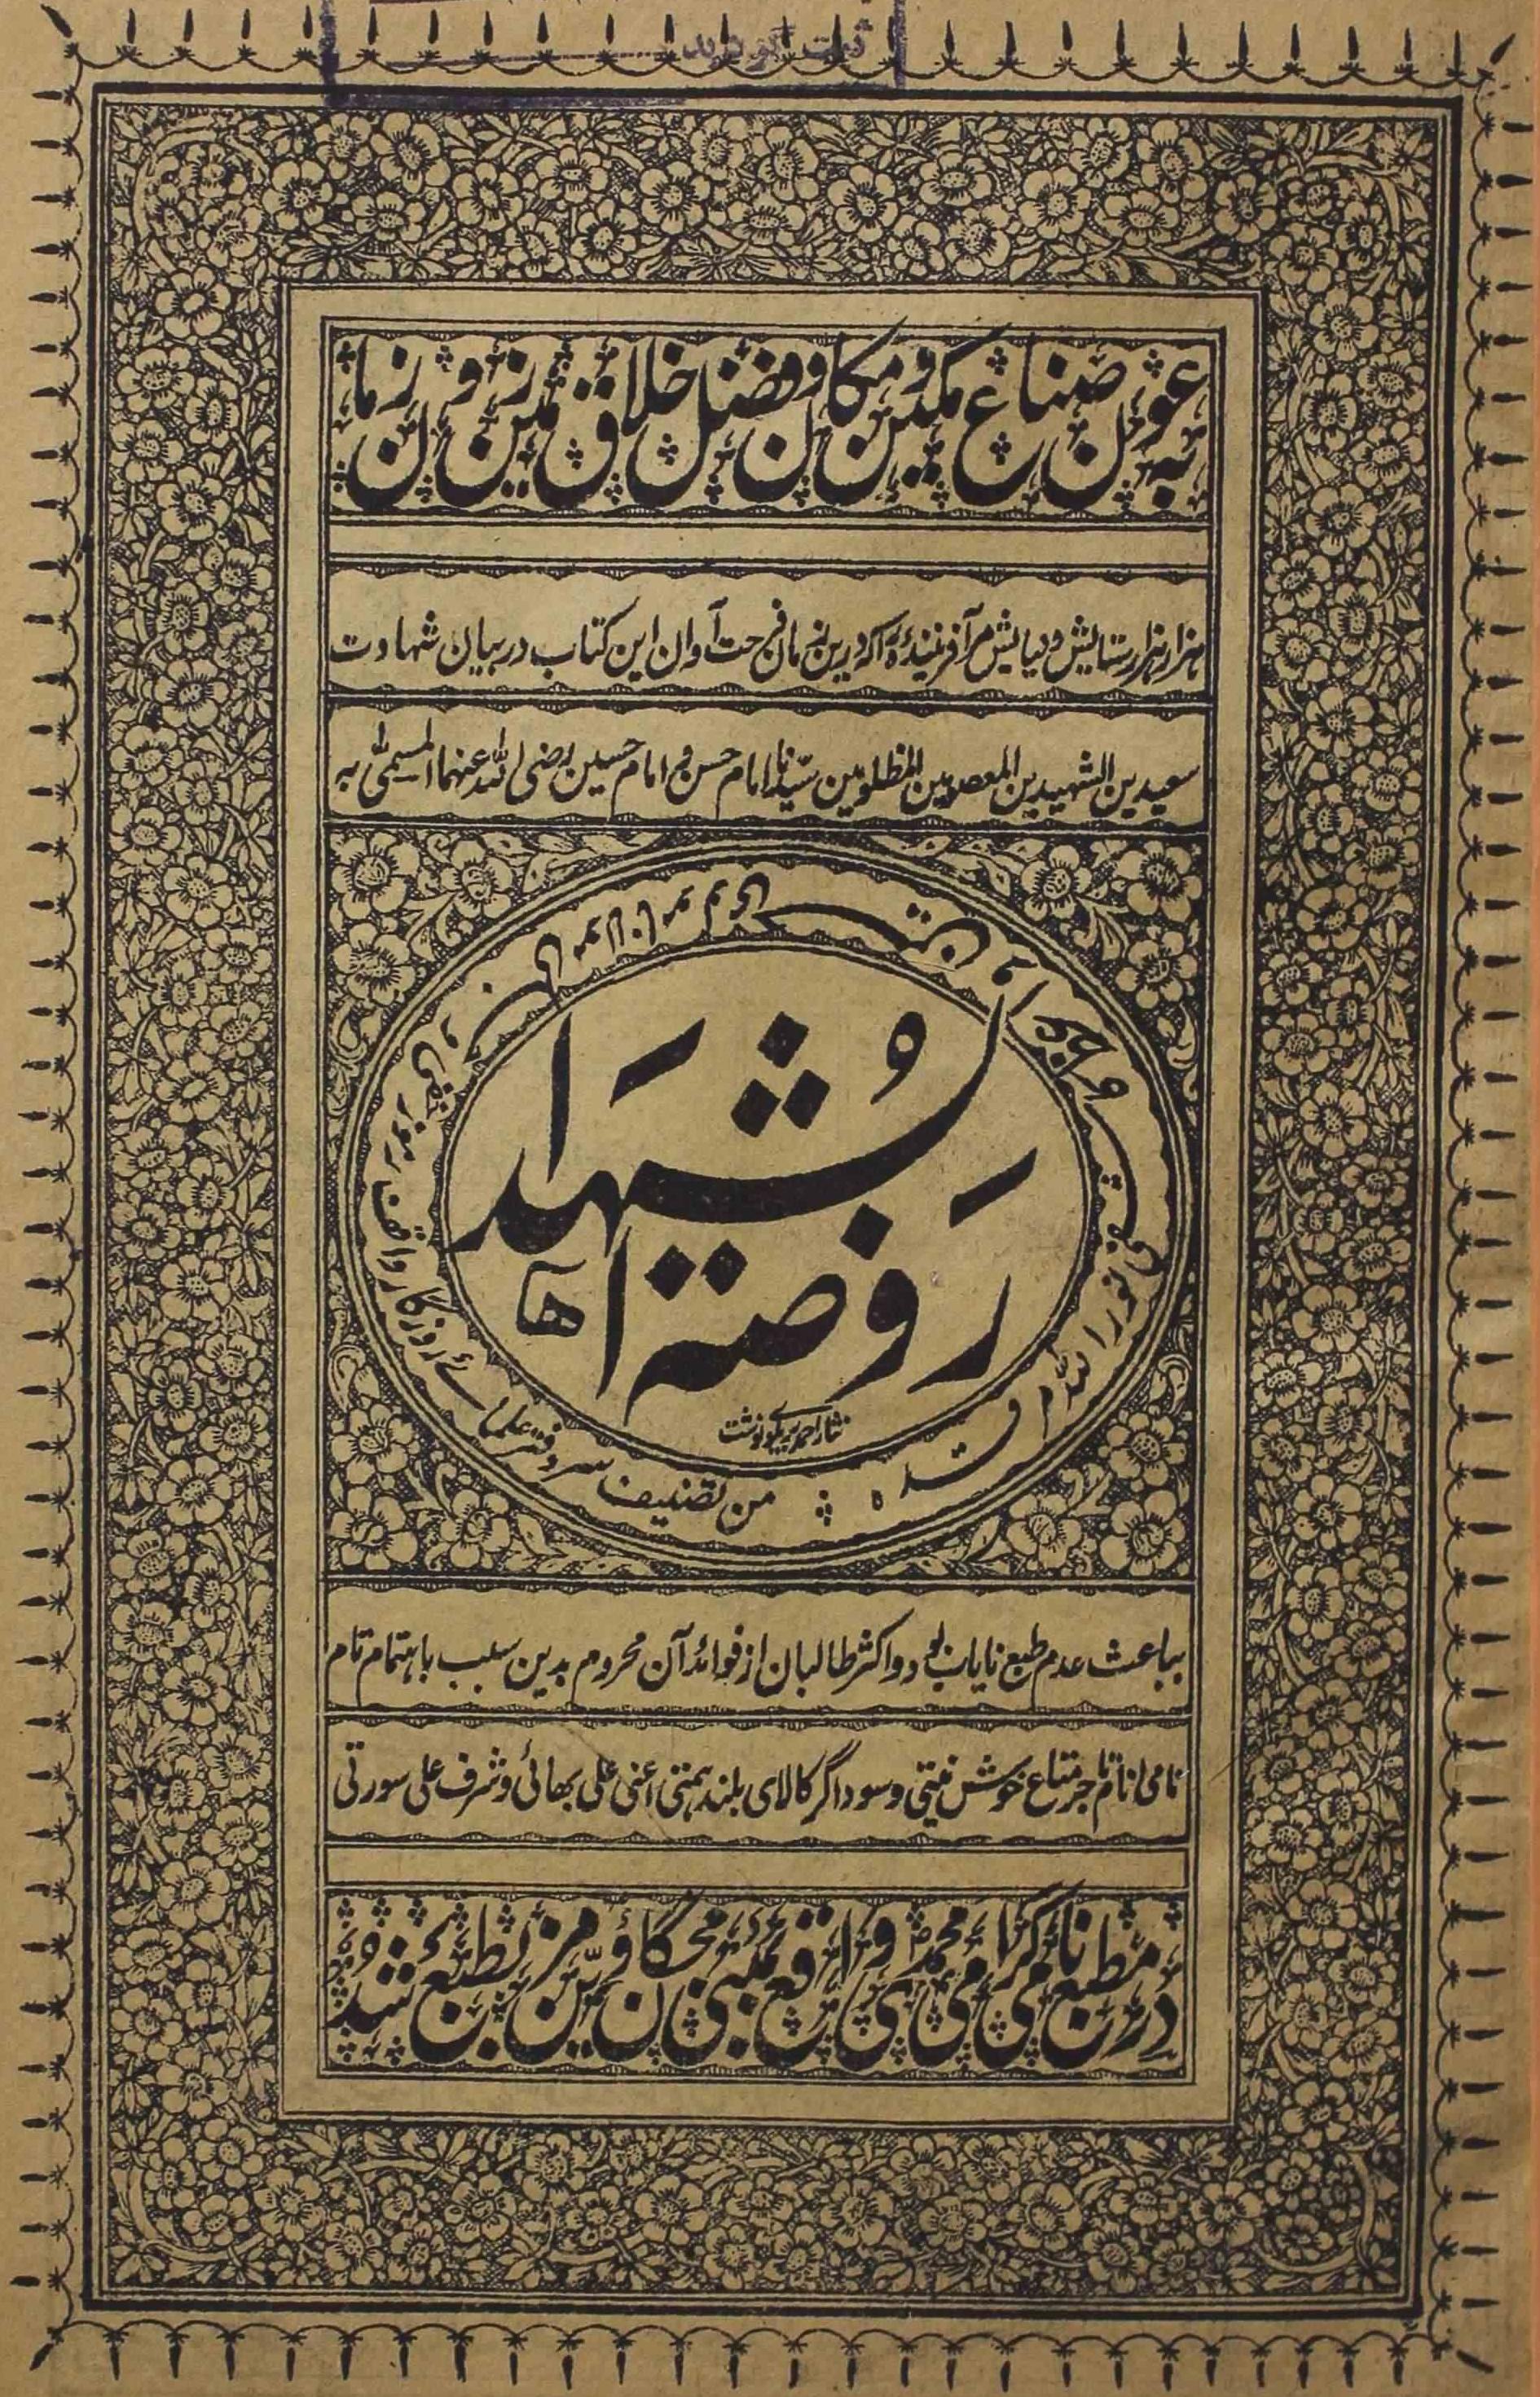 ثبت گردید
بعون صناع مکین و مکان و فضل خلاق زمین و زمان
هزار هزار ستایش و نیایش مر آفرینندهٔ را که درین زمان فرحت آوان این کتاب در بیان شهادت
سعیدین الشهیدین المعصومین المظلومین سیدنا امام حسن و امام حسین رضی الله عنهما المسمی به
روضة الشهداء
نثار احمد بریلوی نوشت
من تصنیف سر دفتر علمائے روزگار واقف
نور الله مرقده
بباعث عدم طبع نایاب بود و اکثر طالبان از فوائد آن محروم بدین سبب باهتمام تام
نامی انام تاجر متاع خوش نیتی و سوداگر کالای بلند همتی اعنی علی بھائی و شرف علی سورتی
در مطبع نامی گرامی محمدی واقع بمبئی مزین بطبع شد